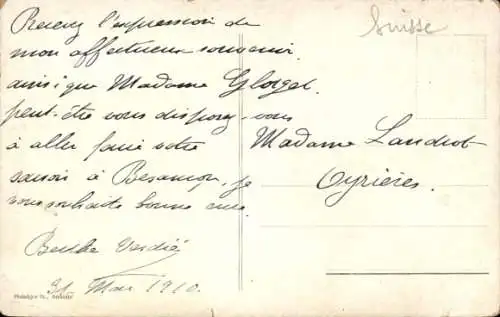 Suisse
Recevez l'expression de
mon affectueux souvenir
ainsi que Madame
peut-être vous disposez-vous
à aller faire votre
saison à Besançon, je
vous souhaite bonne cure.
Berthe Verdié
31 Mai 1910.
Madame Landrot
Oyrières.